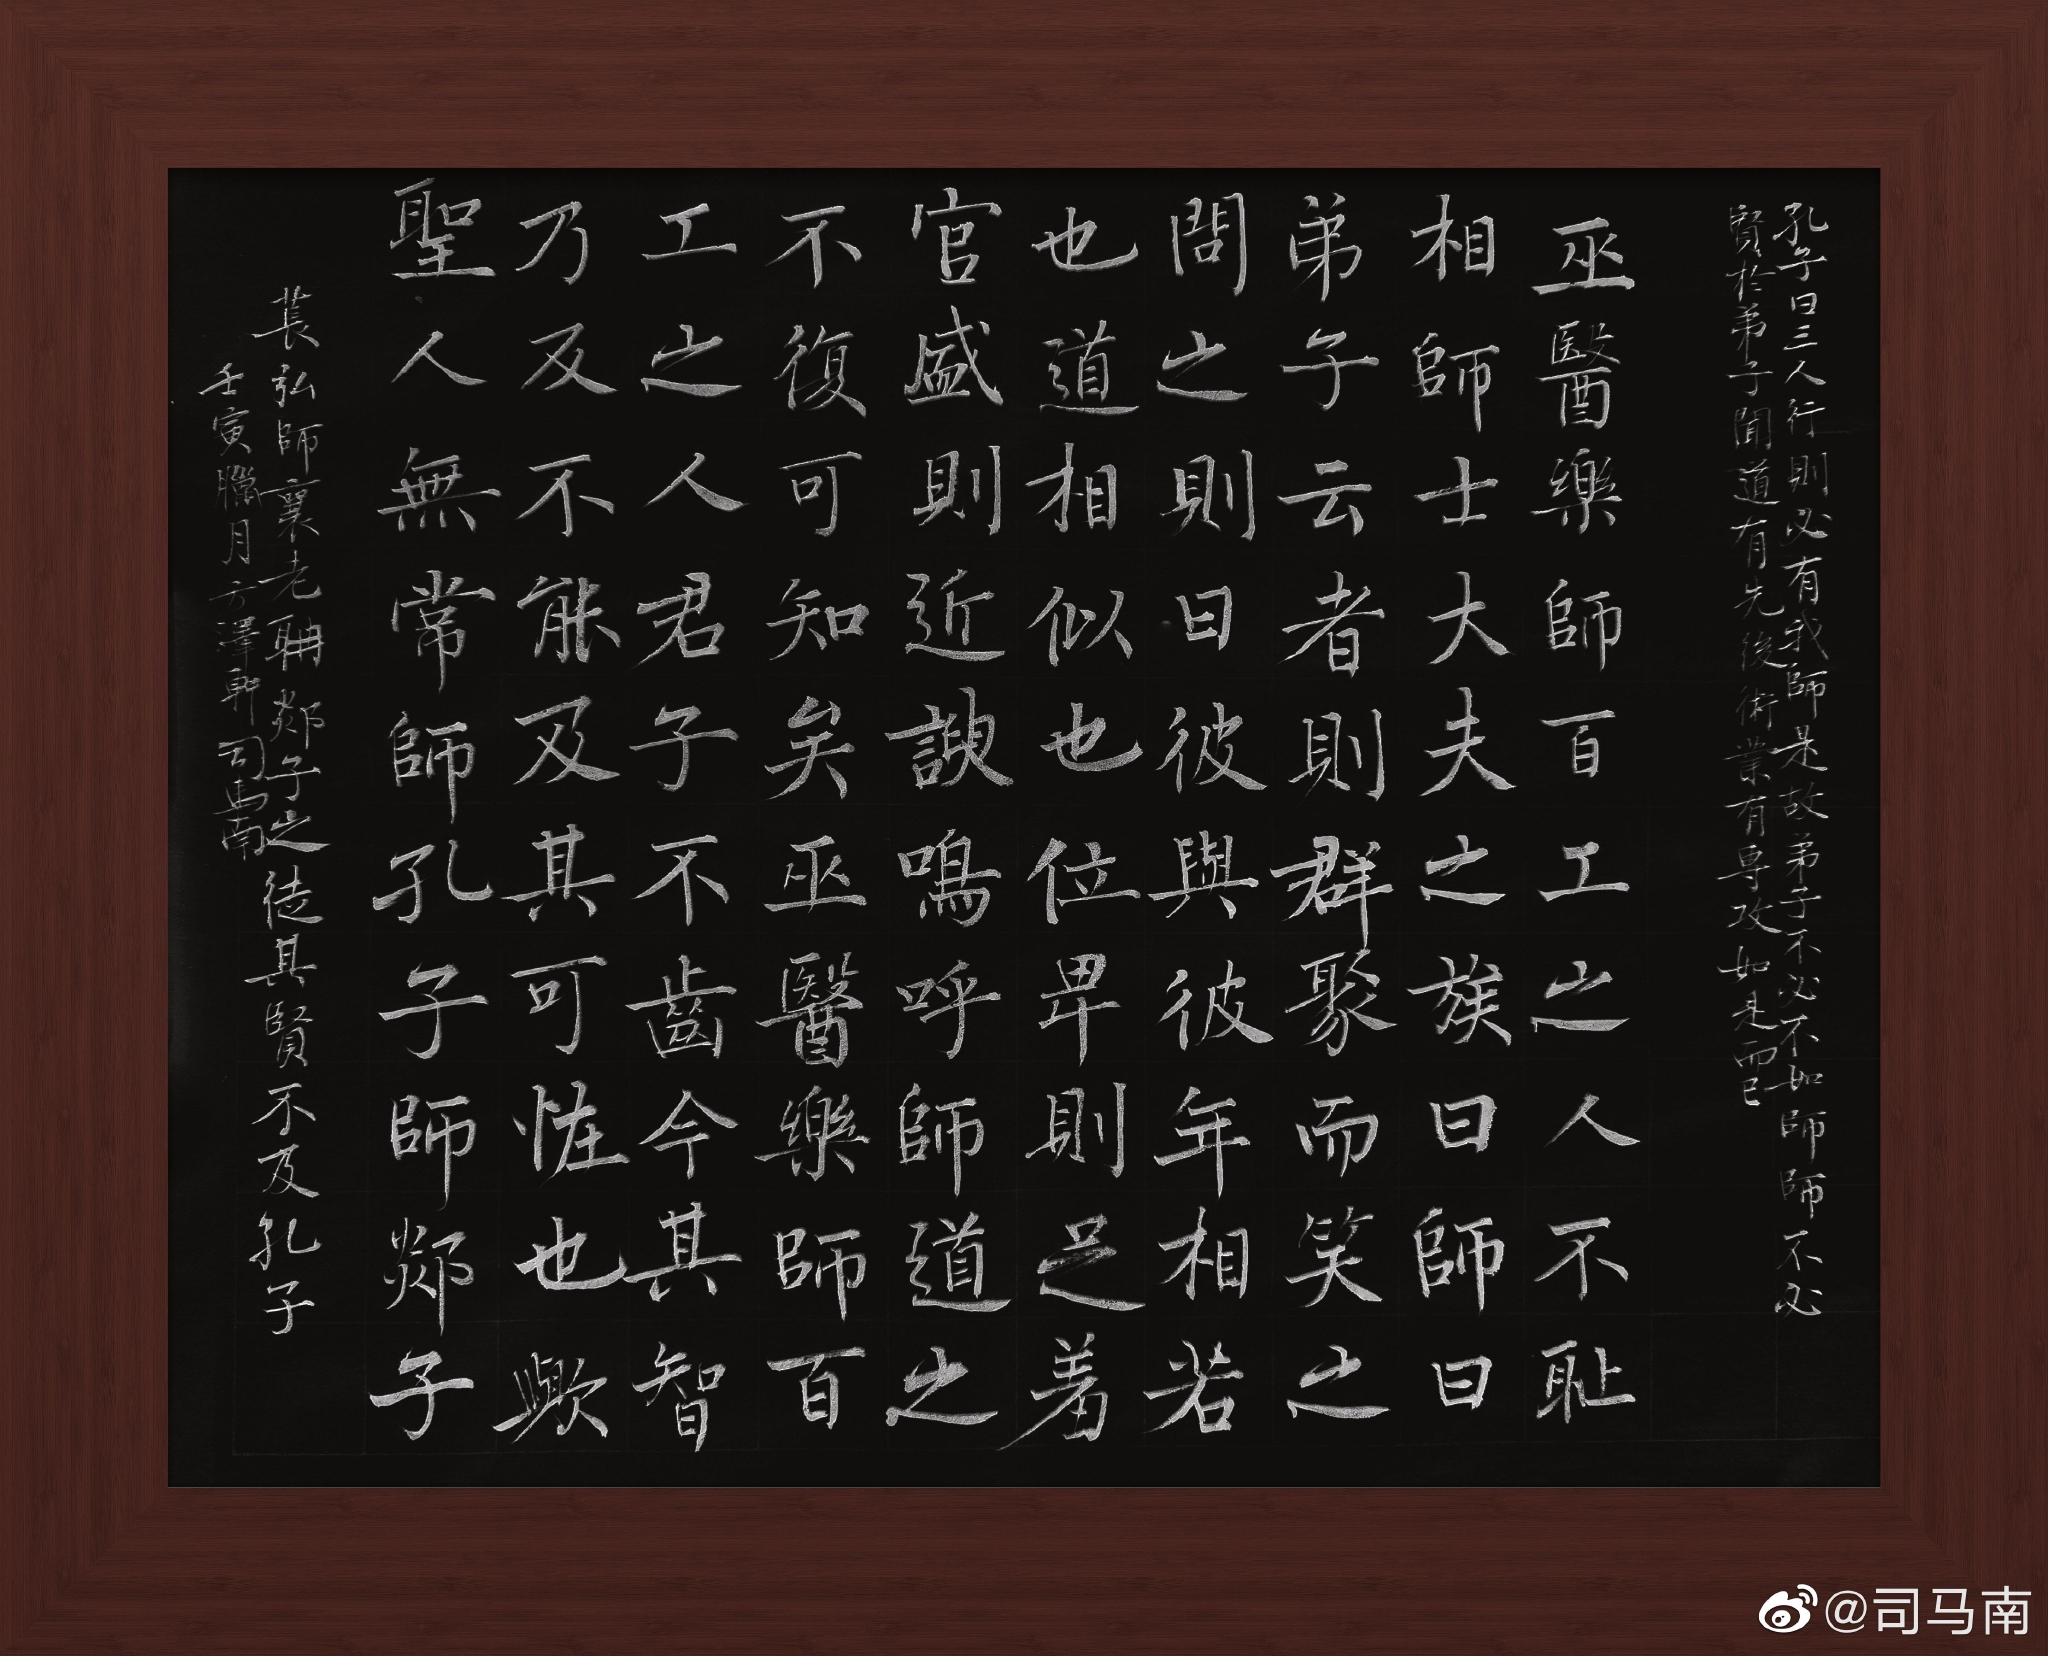 孔子曰三人行則必有我師是故弟子不必不如師師不必
賢於弟子聞道有先後術業有專攻如是而已
巫醫樂師百工之人不耻
相師士大夫之族曰師曰
弟子云者則群聚而笑之
問之則曰彼與彼年相若
也道相似也位卑則足羞
官盛則近諛嗚呼師道之
不復可知矣巫醫樂師百
工之人君子不齒今其智
乃反不能及其可恠也歟
聖人無常師孔子師郯子
萇弘師襄老聃郯子之徒其賢不及孔子
壬寅臘月方澤軒司馬南
@司马南